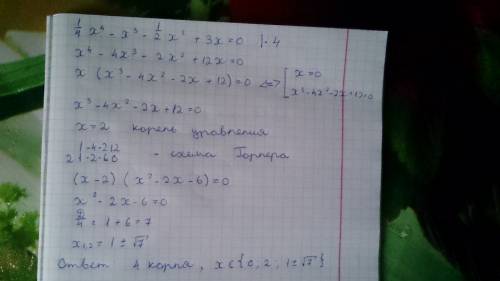 1/4 x⁴ - x³ - 1/2 x² + 3x = 0 |·4
x⁴ - 4x³ - 2x² + 12x = 0
x (x³ - 4x² - 2x + 12) = 0 <=> [ x = 0
x³ - 4x² - 2x + 12 = 0
x³ - 4x² - 2x + 12 = 0
x = 2 корень уравнения
2 | 1 -4 -2 12
1 -2 -6 0 - схема Горнера
(x - 2) (x² - 2x - 6) = 0
x² - 2x - 6 = 0
D/4 = 1 + 6 = 7
x₁,₂ = 1 ± √7
Ответ 4 корня, x ∈ {0, 2, 1 ± √7}